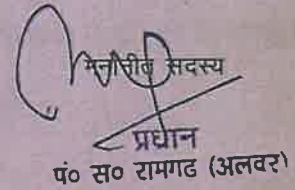 मनोनीत सदस्य
प्रधान
पं० स० रामगढ (अलवर)